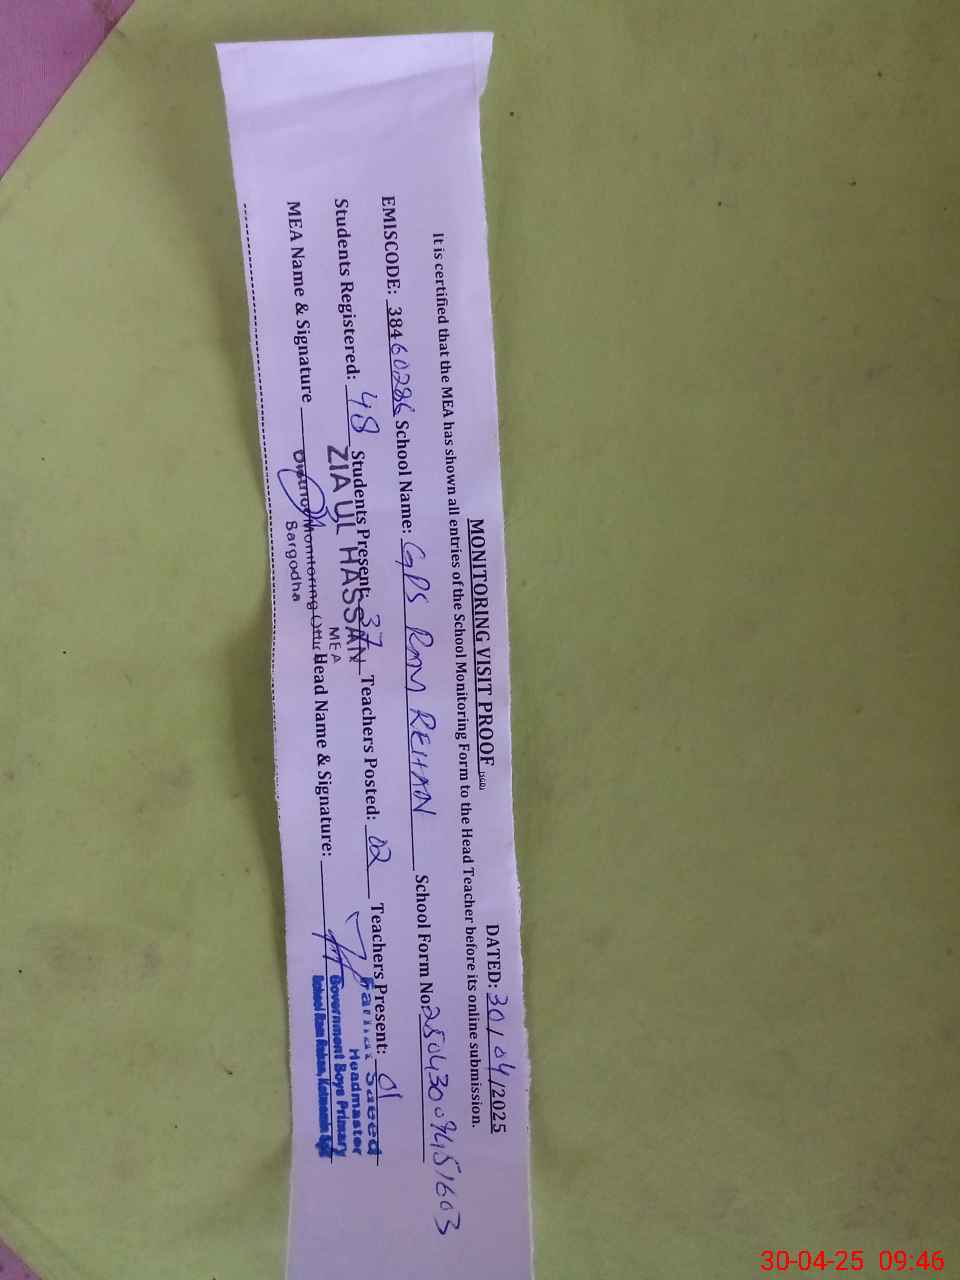 MONITORING VISIT PROOF (SGD)
DATED: 30/04/2025
It is certified that the MEA has shown all entries of the School Monitoring Form to the Head Teacher before its online submission.
EMISCODE: 38460286 School Name: GPS RAM REHAN School Form No: 25043009451603
Students Registered: 48 Students Present: 37 Teachers Posted: 02 Teachers Present: 01
ZIA UL HASSAN
MEA
MEA Name & Signature Head Name & Signature:
District Monitoring
Sargodha
Saeed
Headmaster
Government Boys Primary
School Ram Rehan,
30-04-25 09:46